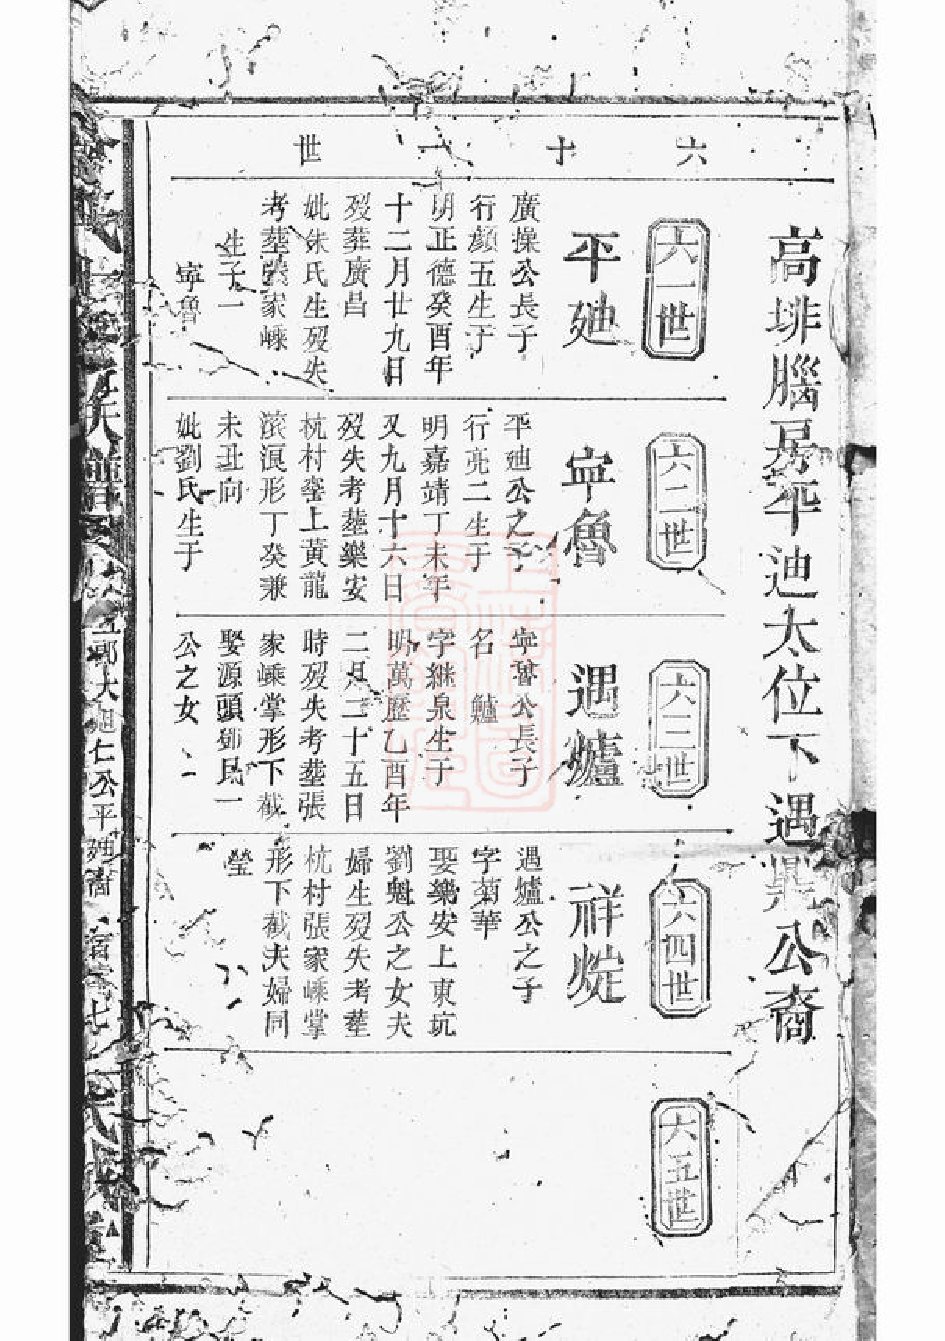 六十一世
高排腦房平迪太位下遇爐公裔
六一世
平廸
廣操公長子
行顏五生于
明正德癸酉年
十二月廿九日
歿葬廣昌
妣朱氏生歿失
考塟張家嵊
生子一
寧魯
六二世
寧魯
平廸公之子
行亮二生于
明嘉靖丁未年
又九月十六日
歿失考塟樂安
杭村壟上黃龍
滾浪形丁癸兼
未丑向
妣劉氏生于
六三世
遇爐
寧魯公長子
名鱸
字継泉生于
明萬歷乙酉年
二月二十五日
時歿失考塟張
家嵊掌形下截
娶源頭鄧氏一
公之女
六四世
祥熀
遇爐公之子
字菊華
娶樂安上東坑
劉魁公之女夫
婦生歿失考塟
杭村張家嵊掌
形下截夫婦同
塋
六五世
郎大旭仁公平廸裔